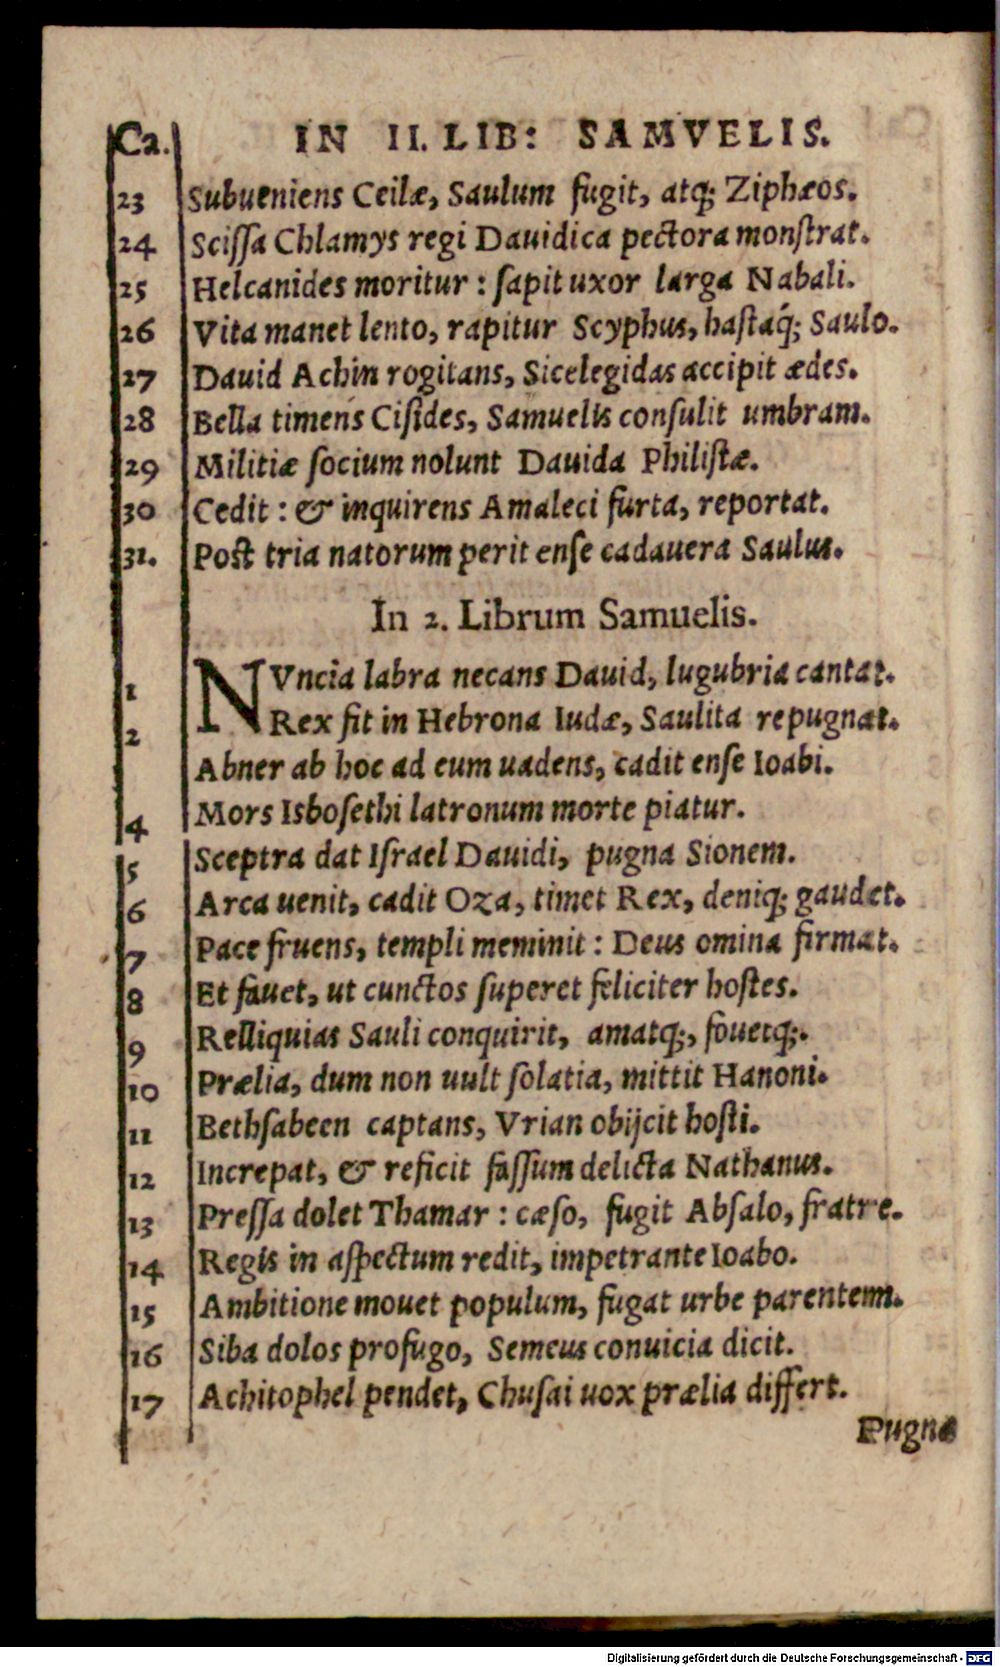 Ca. IN II. LIB: SAMVELIS.
23 Subueniens Ceilæ, Saulum fugit, atq; Ziphæos.
24 Sciſſa Chlamys regi Dauidica pectora monſtrat.
25 Helcanides moritur : ſapit uxor larga Nabali.
26 Vita manet lento, rapitur Scyphus, haſtaq́; Saulo.
27 Dauid Achin rogitans, Sicelegidas accipit ædes.
28 Bella timens Ciſides, Samuelis conſulit umbram.
29 Militiæ ſocium nolunt Dauida Philiſtæ.
30 Cedit : & inquirens Amaleci furta, reportat.
31. Poſt tria natorum perit enſe cadauera Saulus.
In 2. Librum Samuelis.
1 NVncia labra necans Dauid, lugubria cantat.
2 Rex fit in Hebrona Iudæ, Saulita repugnat.
Abner ab hoc ad eum uadens, cadit enſe Ioabi.
4 Mors Isboſethi latronum morte piatur.
5 Sceptra dat Iſrael Dauidi, pugna Sionem.
6 Arca uenit, cadit Oza, timet Rex, deniq; gaudet.
7 Pace fruens, templi meminit : Deus omina firmat.
8 Et fauet, ut cunctos ſuperet feliciter hoſtes.
9 Relliquias Sauli conquirit, amatq;, fouetq;.
10 Prælia, dum non uult ſolatia, mittit Hanoni.
11 Bethſabeen captans, Vrian obijcit hoſti.
12 Increpat, & reficit faſſum delicta Nathanus.
13 Preſſa dolet Thamar : cæſo, fugit Abſalo, fratre.
14 Regis in aſpectum redit, impetrante Ioabo.
15 Ambitione mouet populum, fugat urbe parentem.
16 Siba dolos profugo, Semeus conuicia dicit.
17 Achitophel pendet, Chuſai uox prælia differt.
Pugna
Digitalisierung gefördert durch die Deutsche Forschungsgemeinschaft - DFG